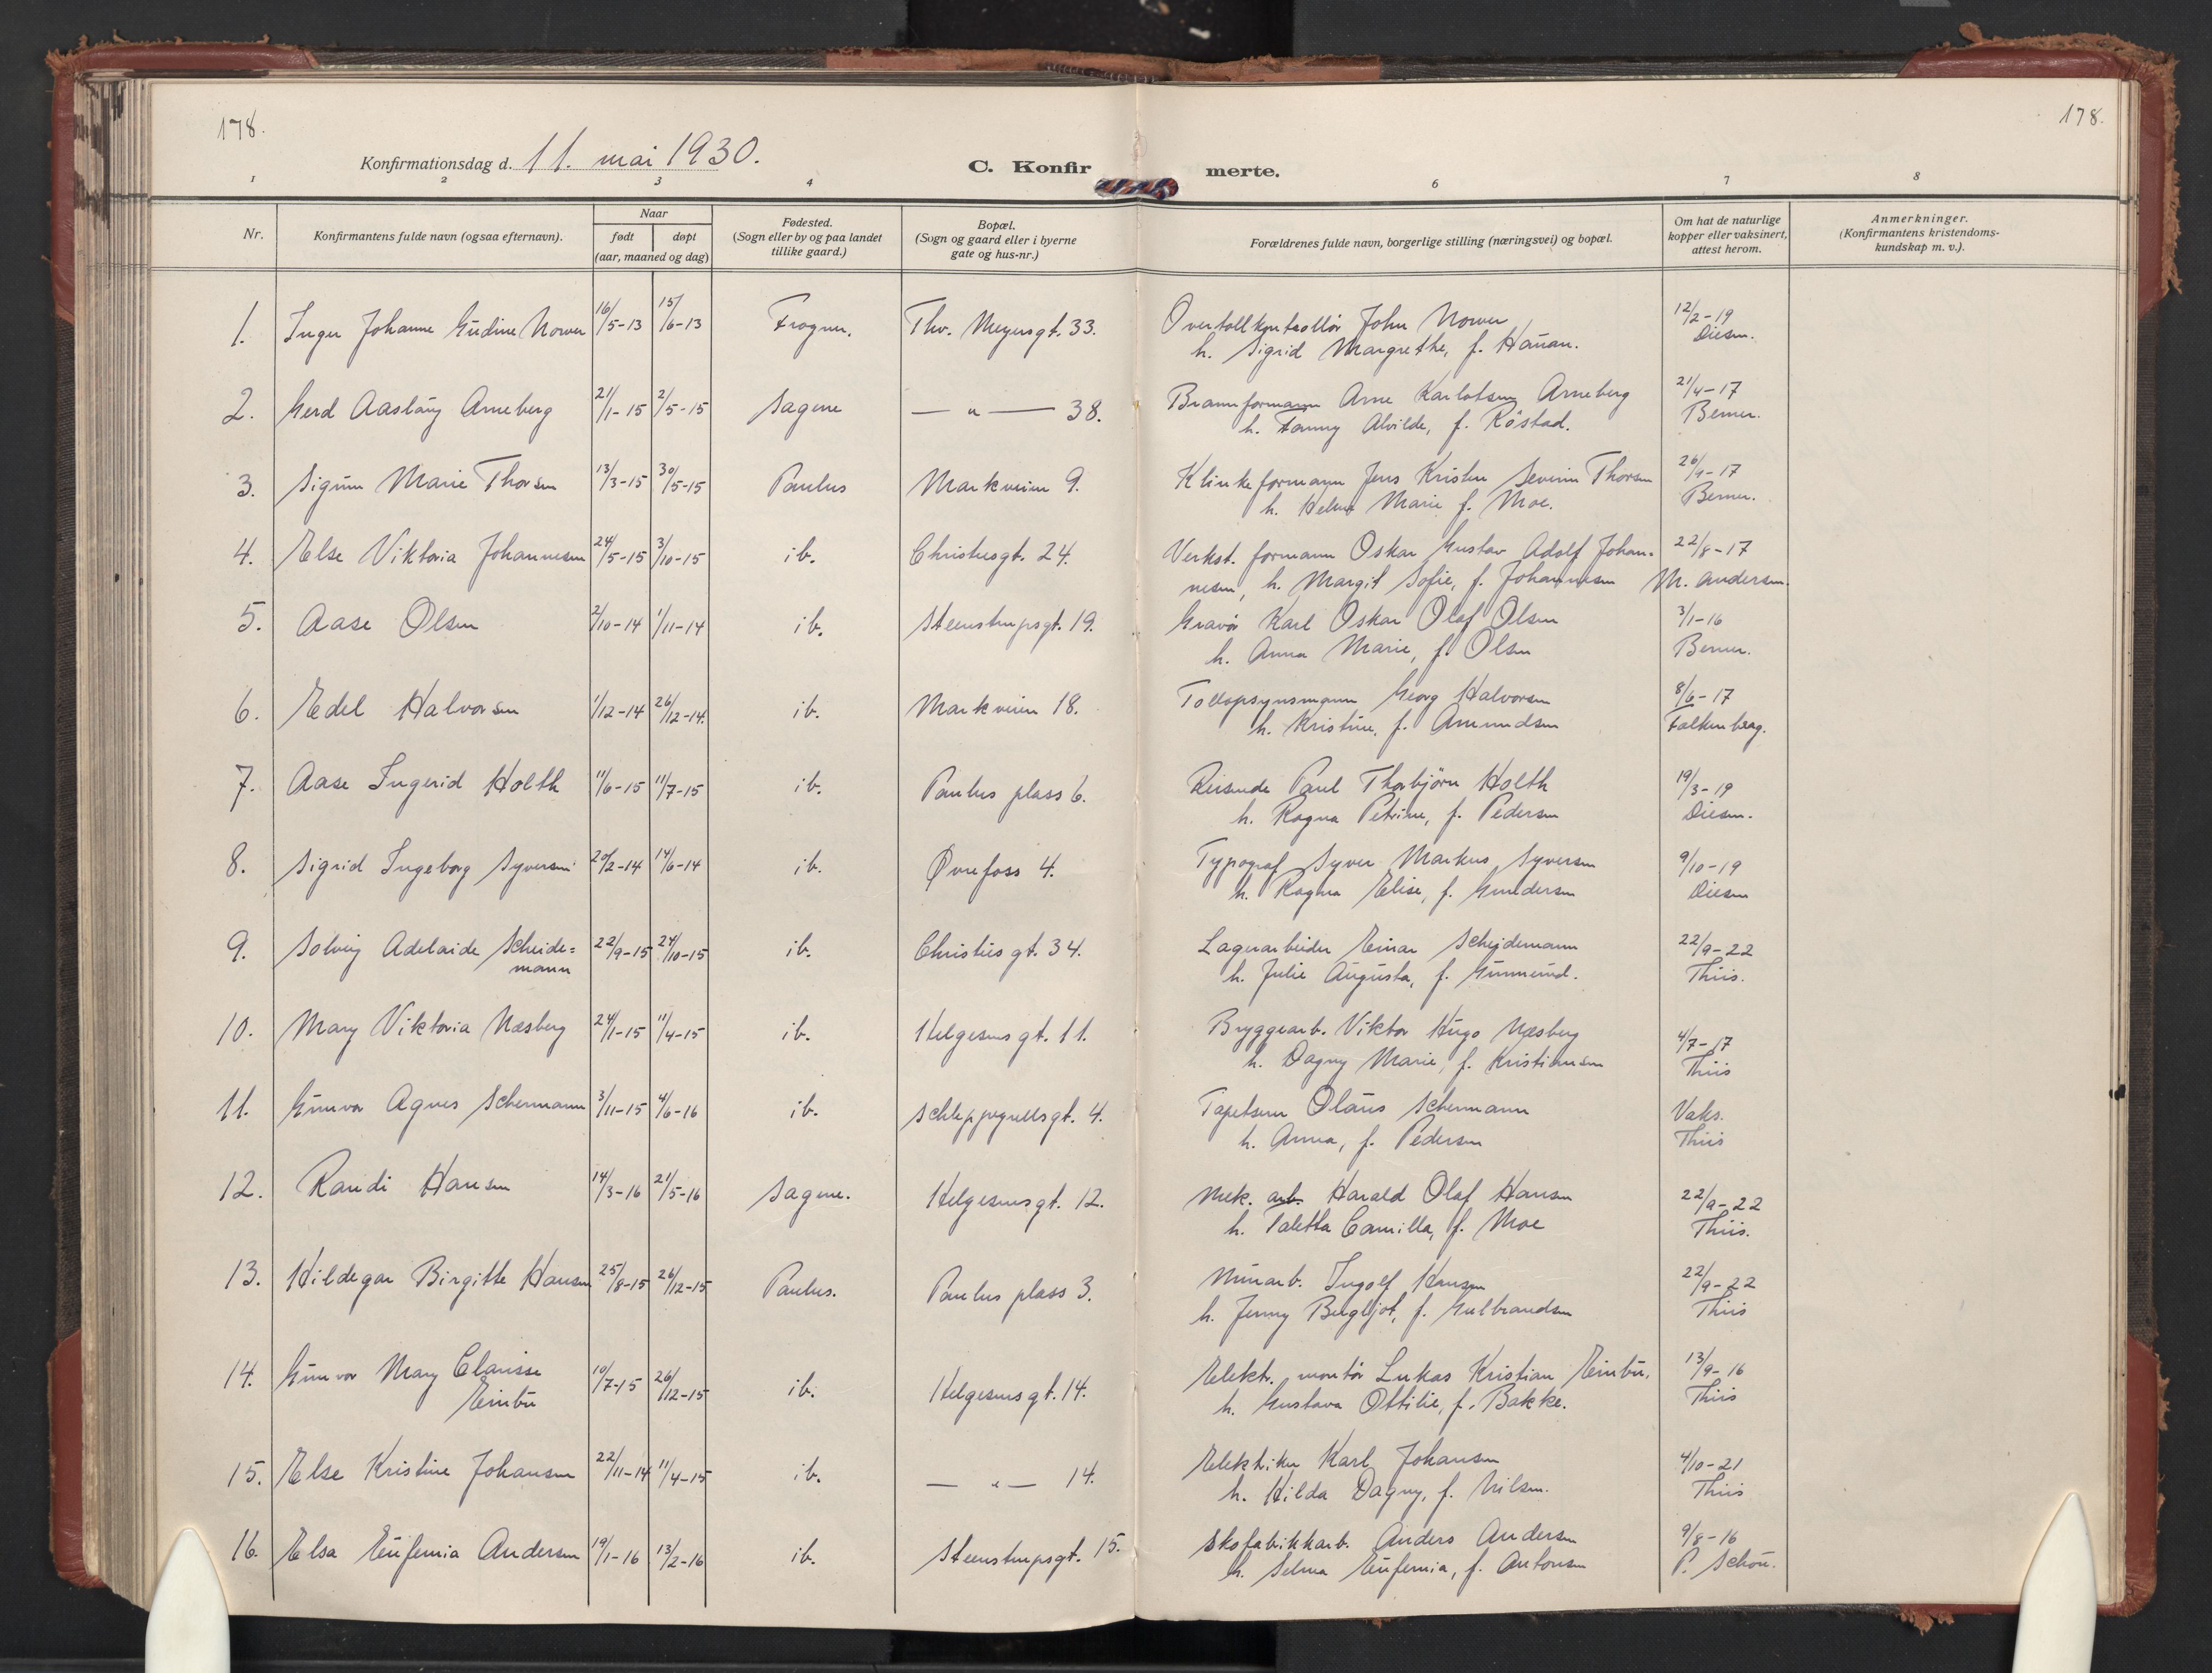 178.
178.
Konfirmationsdag d. 11. mai 1930.
C. Konfirmerte.
1 2 3 4 6 7 8
Nr.
Konfirmantens fulde navn (ogsaa efternavn).
Naar
født
døpt
(aar, maaned og dag)
Fødested.
(Sogn eller by og paa landet
tillike gaard.)
Bopæl.
(Sogn og gaard eller i byerne
gate og hus-nr.)
Forældrenes fulde navn, borgerlige stilling (næringsvei) og bopæl.
Om hat de naturlige
kopper eller vaksinert,
attest herom.
Anmerkninger.
(Konfirmantens kristendoms-
kundskap m. v.).
1. Inger Johanne Gudine Nower 16/5-13 15/6-13 Frogner. Thv. Meyersgt. 33. Overtollkontrollør John Nower 12/2-19
h. Sigrid Margrethe, f. Hauan. Diesen.
2. Gerd Aaslaug Arneberg 21/1-15 2/5-15 Sagene — " — 38. Brannformann Arne Karlotsen Arneberg 21/4-17
h. Fanny Alvilde, f. Röstad. Berner.
3. Sigrun Marie Thorsen 13/3-15 30/5-15 Paulus Markveien 9. Klinkeformann Jens Kristen Severin Thorsen 26/9-17
h. Helene Marie f. Moe. Berner.
4. Else Viktoria Johannesen 24/5-15 3/10-15 ib. Christiesgt. 24. Verkst. formann Oskar Gustav Adolf Johan= 22/8-17
nesen, h. Margit Sofie, f. Johannesen M. Andersen.
5. Aase Olsen 2/10-14 1/11-14 ib. Steenstrupsgt. 19. Gravør Karl Oskar Olaf Olsen 3/1-16
h. Anna Marie, f. Olsen Berner.
6. Edel Halvorsen 1/12-14 26/12-14. ib. Markveien 18. Tollopsynsmann Georg Halvorsen 8/6-17
h. Kristine, f. Amundsen Falkenberg.
7. Aase Ingerid Holth 11/6-15 11/7-15 ib. Paulus plass 6. Reisende Paul Thorbjörn Holth 19/3-19
h. Ragna Petrine, f. Pedersen Diesen.
8. Sigrid Ingeborg Syversen 20/2-14 14/6-14 ib. Øvrefoss 4. Typograf Syver Markus Syversen 9/10-19
h. Ragna Elise, f. Gundersen Diesen
9. Solveig Adelaide Scheide= 22/9-15 24/10-15 ib. Christies gt. 34. Lagerarbeider Einar Scheidemann 22/9-22
mann h. Julie Augusta, f. Gunnerud. Thiis.
10. Mary Viktoria Næsberg 24/1-15 11/4-15 ib. Helgesens gt. 11. Bryggearb. Viktor Hugo Næsberg 4/7-17
h. Dagny Marie, f. Kristiansen Thiis
11. Gunvor Agnes Schermann 3/11-15 4/6-16 ib. Schleppegrellsgt. 4. Tapetserer Olaus Schermann Vaks.
h. Anna, f. Pedersen Thiis
12. Randi Hansen 14/3-16 21/5-16 Sagene. Helgesensgt. 12. Mek. arb. Harald Olaf Hansen 22/9-22
h. Valetta Camilla, f. Moe Thiis.
13. Hildegar Birgitte Hansen 25/8-15 26/12-15 Paulus. Paulus plass 3. Murarb. Ingolf Hansen 22/9-22
h. Jenny Bergljot, f. Gulbrandsen Thiis
14. Gunvor Mary Clarisse 10/7-15 26/12-15 ib. Helgesensgt. 14. Elektr. montør Lukas Kristian Einbu, 13/9-16
Einbu h. Gustava Ottilie, f. Bakke. Thiis
15. Else Kristine Johansen 22/11-14 11/4-15 ib. — " — 14. Elektriker Karl Johansen 4/10-21
h. Hilda Dagny, f. Nilsen. Thiis
16. Elsa Eufemia Andersen 19/1-16 13/2-16 ib. Steenstrupsgt. 15. Skofabrikkarb. Anders Andersen 9/8-16
h. Selma Eufemia, f. Antonsen P. Schou.